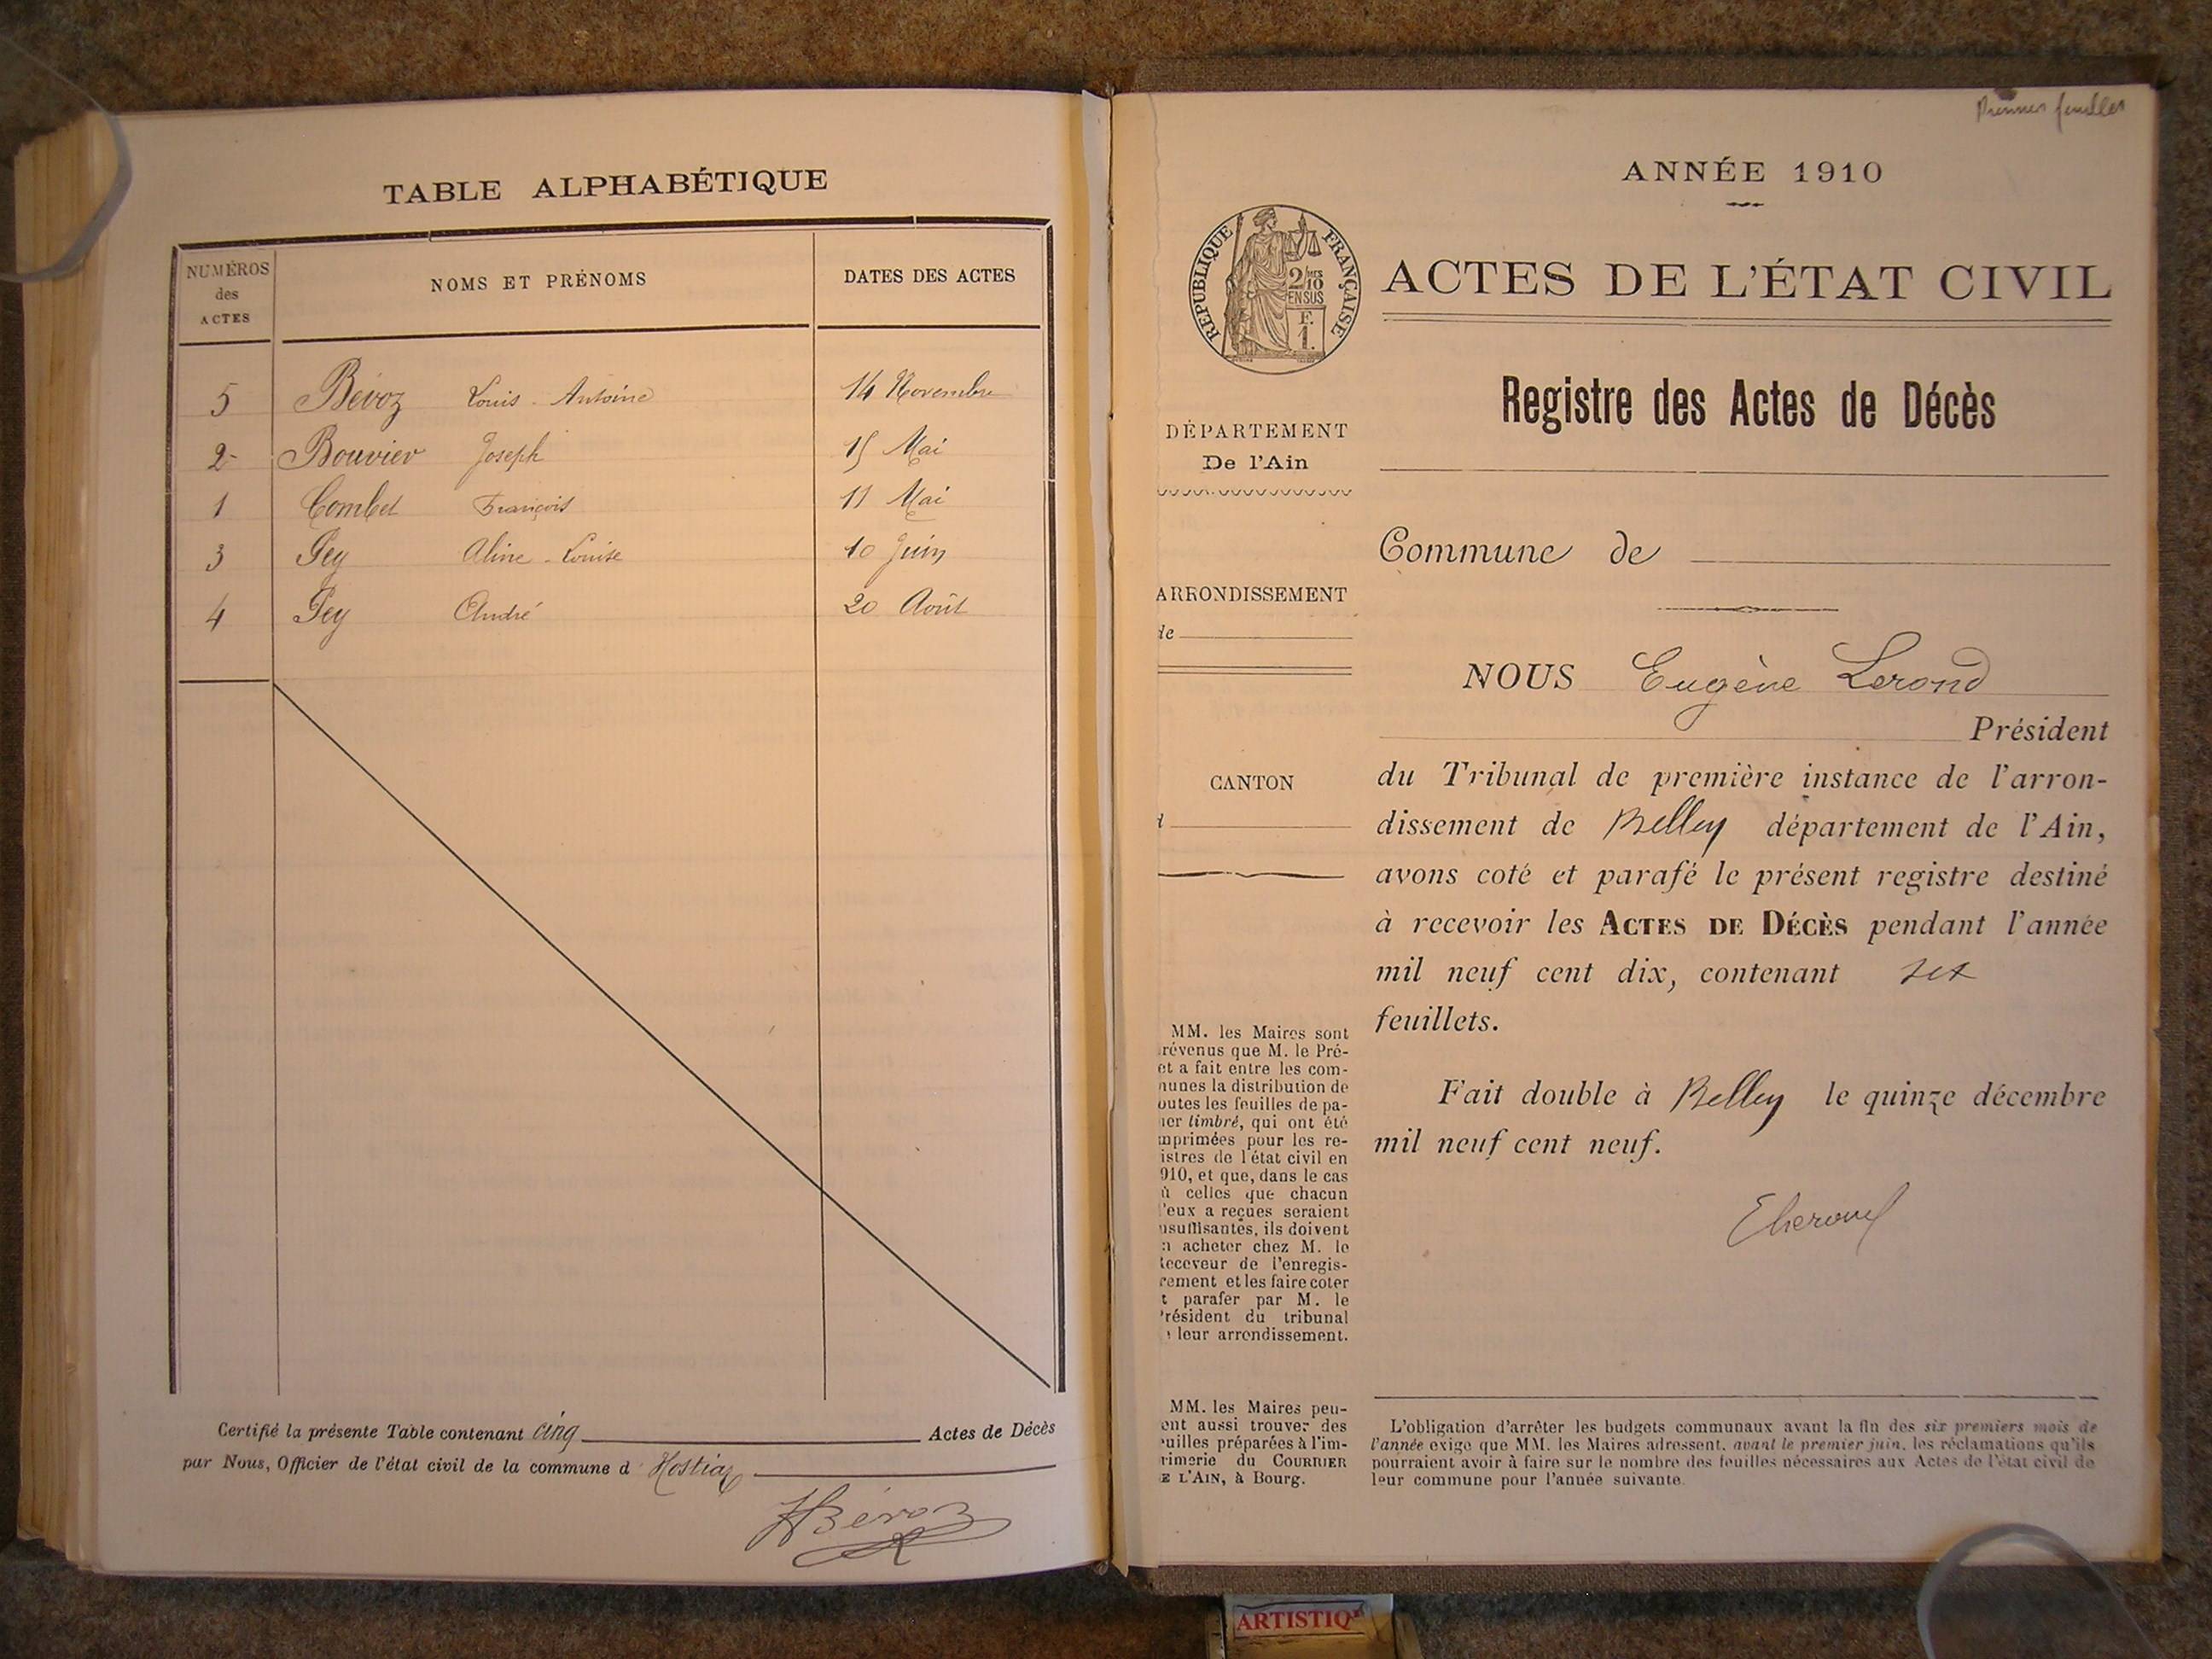 TABLE ALPHABÉTIQUE
NUMÉROS
des
ACTES
NOMS ET PRÉNOMS
DATES DES ACTES
5 Bévoz Louis-Antoine 14 Novembre
2 Bouvier Joseph 15 Mai
1 Combet François 11 Mai
3 Pey Aline-Louise 10 Juin
4 Pey André 20 Août
Certifié la présente Table contenant cinq Actes de Décès
par Nous, Officier de l'état civil de la commune d Hostiaz
HBévoz
Premier feuillet
ANNÉE 1910
RÉPUBLIQUE FRANÇAISE
2/10
EN SUS
F.
1.
ACTES DE L'ÉTAT CIVIL
Registre des Actes de Décès
DÉPARTEMENT
De l'Ain
ARRONDISSEMENT
de
CANTON
d
MM. les Maires sont
révenus que M. le Pré-
et a fait entre les com-
nunes la distribution de
outes les feuilles de pa-
ier timbré, qui ont été
mprimées pour les re-
istres de l'état civil en
910, et que, dans le cas
ù celles que chacun
'eux a reçues seraient
nsuffisantes, ils doivent
n acheter chez M. le
Receveur de l'enregis-
rement et les faire coter
t parafer par M. le
Président du tribunal
leur arrondissement.
MM. les Maires peu-
ent aussi trouver des
euilles préparées à l'im-
rimerie du COURRIER
E L'AIN, à Bourg.
Commune de
NOUS Eugène Lerond
Président
du Tribunal de première instance de l'arron-
dissement de Belley département de l'Ain,
avons coté et parafé le présent registre destiné
à recevoir les ACTES DE DÉCÈS pendant l'année
mil neuf cent dix, contenant six
feuillets.
Fait double à Belley le quinze décembre
mil neuf cent neuf.
ELerond
L'obligation d'arrêter les budgets communaux avant la fin des six premiers mois de
l'année exige que MM. les Maires adressent, avant le premier juin, les réclamations qu'ils
pourraient avoir à faire sur le nombre des feuilles nécessaires aux Actes de l'état civil de
leur commune pour l'année suivante.
ARTISTIQ